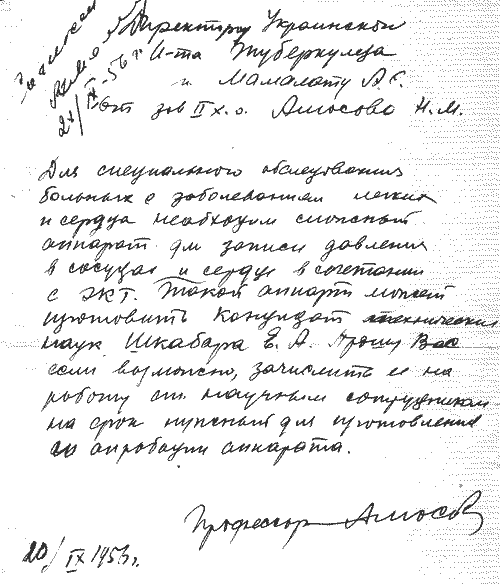 Директору Украинского
И-та Туберкулеза
и Мамолату А.С.
От зав II х.о. Амосова Н.М.
21/IX-56 г
Для специального обследования
больных с заболеваниями легких
и сердца необходим сложный
аппарат для записи давления
в сосудах и сердце в сочетании
с ЭКГ. Такой аппарат может
изготовить кандидат технических
наук Шкабара Е.А. Прошу Вас
если возможно, зачислить ее на
работу ст. научным сотрудником
на срок нужный для изготовления
и апробации аппарата.
Профессор Амосов
20/IX 1956 г.